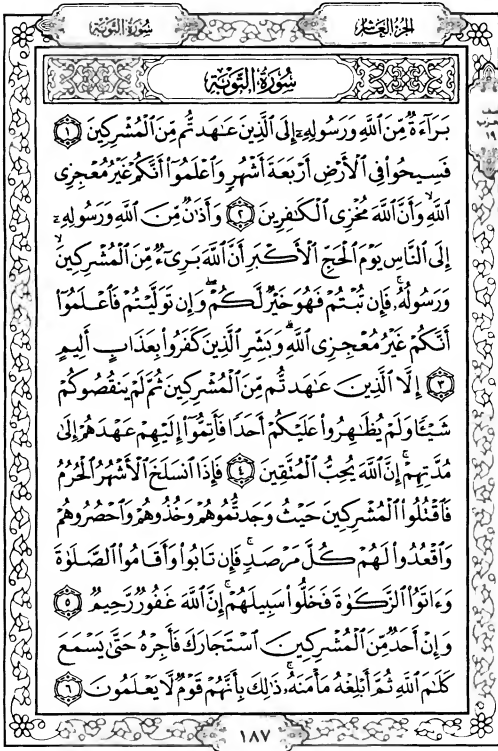 الجزء العاشر
سورة التوبة
حزب
١٩
سورة التوبة
بَرَآءَةٌ مِّنَ ٱللَّهِ وَرَسُولِهِۦٓ إِلَى ٱلَّذِينَ عَٰهَدتُّم مِّنَ ٱلْمُشْرِكِينَ ١
فَسِيحُوا۟ فِى ٱلْأَرْضِ أَرْبَعَةَ أَشْهُرٍ وَٱعْلَمُوٓا۟ أَنَّكُمْ غَيْرُ مُعْجِزِى
ٱللَّهِ ۙ وَأَنَّ ٱللَّهَ مُخْزِى ٱلْكَٰفِرِينَ ٢ وَأَذَٰنٌ مِّنَ ٱللَّهِ وَرَسُولِهِۦٓ
إِلَى ٱلنَّاسِ يَوْمَ ٱلْحَجِّ ٱلْأَكْبَرِ أَنَّ ٱللَّهَ بَرِىٓءٌ مِّنَ ٱلْمُشْرِكِينَ ۙ
وَرَسُولُهُۥ ۚ فَإِن تُبْتُمْ فَهُوَ خَيْرٌ لَّكُمْ ۖ وَإِن تَوَلَّيْتُمْ فَٱعْلَمُوٓا۟
أَنَّكُمْ غَيْرُ مُعْجِزِى ٱللَّهِ ۗ وَبَشِّرِ ٱلَّذِينَ كَفَرُوا۟ بِعَذَابٍ أَلِيمٍ
٣ إِلَّا ٱلَّذِينَ عَٰهَدتُّم مِّنَ ٱلْمُشْرِكِينَ ثُمَّ لَمْ يَنقُصُوكُمْ
شَيْـًٔا وَلَمْ يُظَٰهِرُوا۟ عَلَيْكُمْ أَحَدًا فَأَتِمُّوٓا۟ إِلَيْهِمْ عَهْدَهُمْ إِلَىٰ
مُدَّتِهِمْ ۚ إِنَّ ٱللَّهَ يُحِبُّ ٱلْمُتَّقِينَ ٤ فَإِذَا ٱنسَلَخَ ٱلْأَشْهُرُ ٱلْحُرُمُ
فَٱقْتُلُوا۟ ٱلْمُشْرِكِينَ حَيْثُ وَجَدتُّمُوهُمْ وَخُذُوهُمْ وَٱحْصُرُوهُمْ
وَٱقْعُدُوا۟ لَهُمْ كُلَّ مَرْصَدٍ ۚ فَإِن تَابُوا۟ وَأَقَامُوا۟ ٱلصَّلَوٰةَ
وَءَاتَوُا۟ ٱلزَّكَوٰةَ فَخَلُّوا۟ سَبِيلَهُمْ ۚ إِنَّ ٱللَّهَ غَفُورٌ رَّحِيمٌ ٥
وَإِنْ أَحَدٌ مِّنَ ٱلْمُشْرِكِينَ ٱسْتَجَارَكَ فَأَجِرْهُ حَتَّىٰ يَسْمَعَ
كَلَٰمَ ٱللَّهِ ثُمَّ أَبْلِغْهُ مَأْمَنَهُۥ ۚ ذَٰلِكَ بِأَنَّهُمْ قَوْمٌ لَّا يَعْلَمُونَ ٦
١٨٧